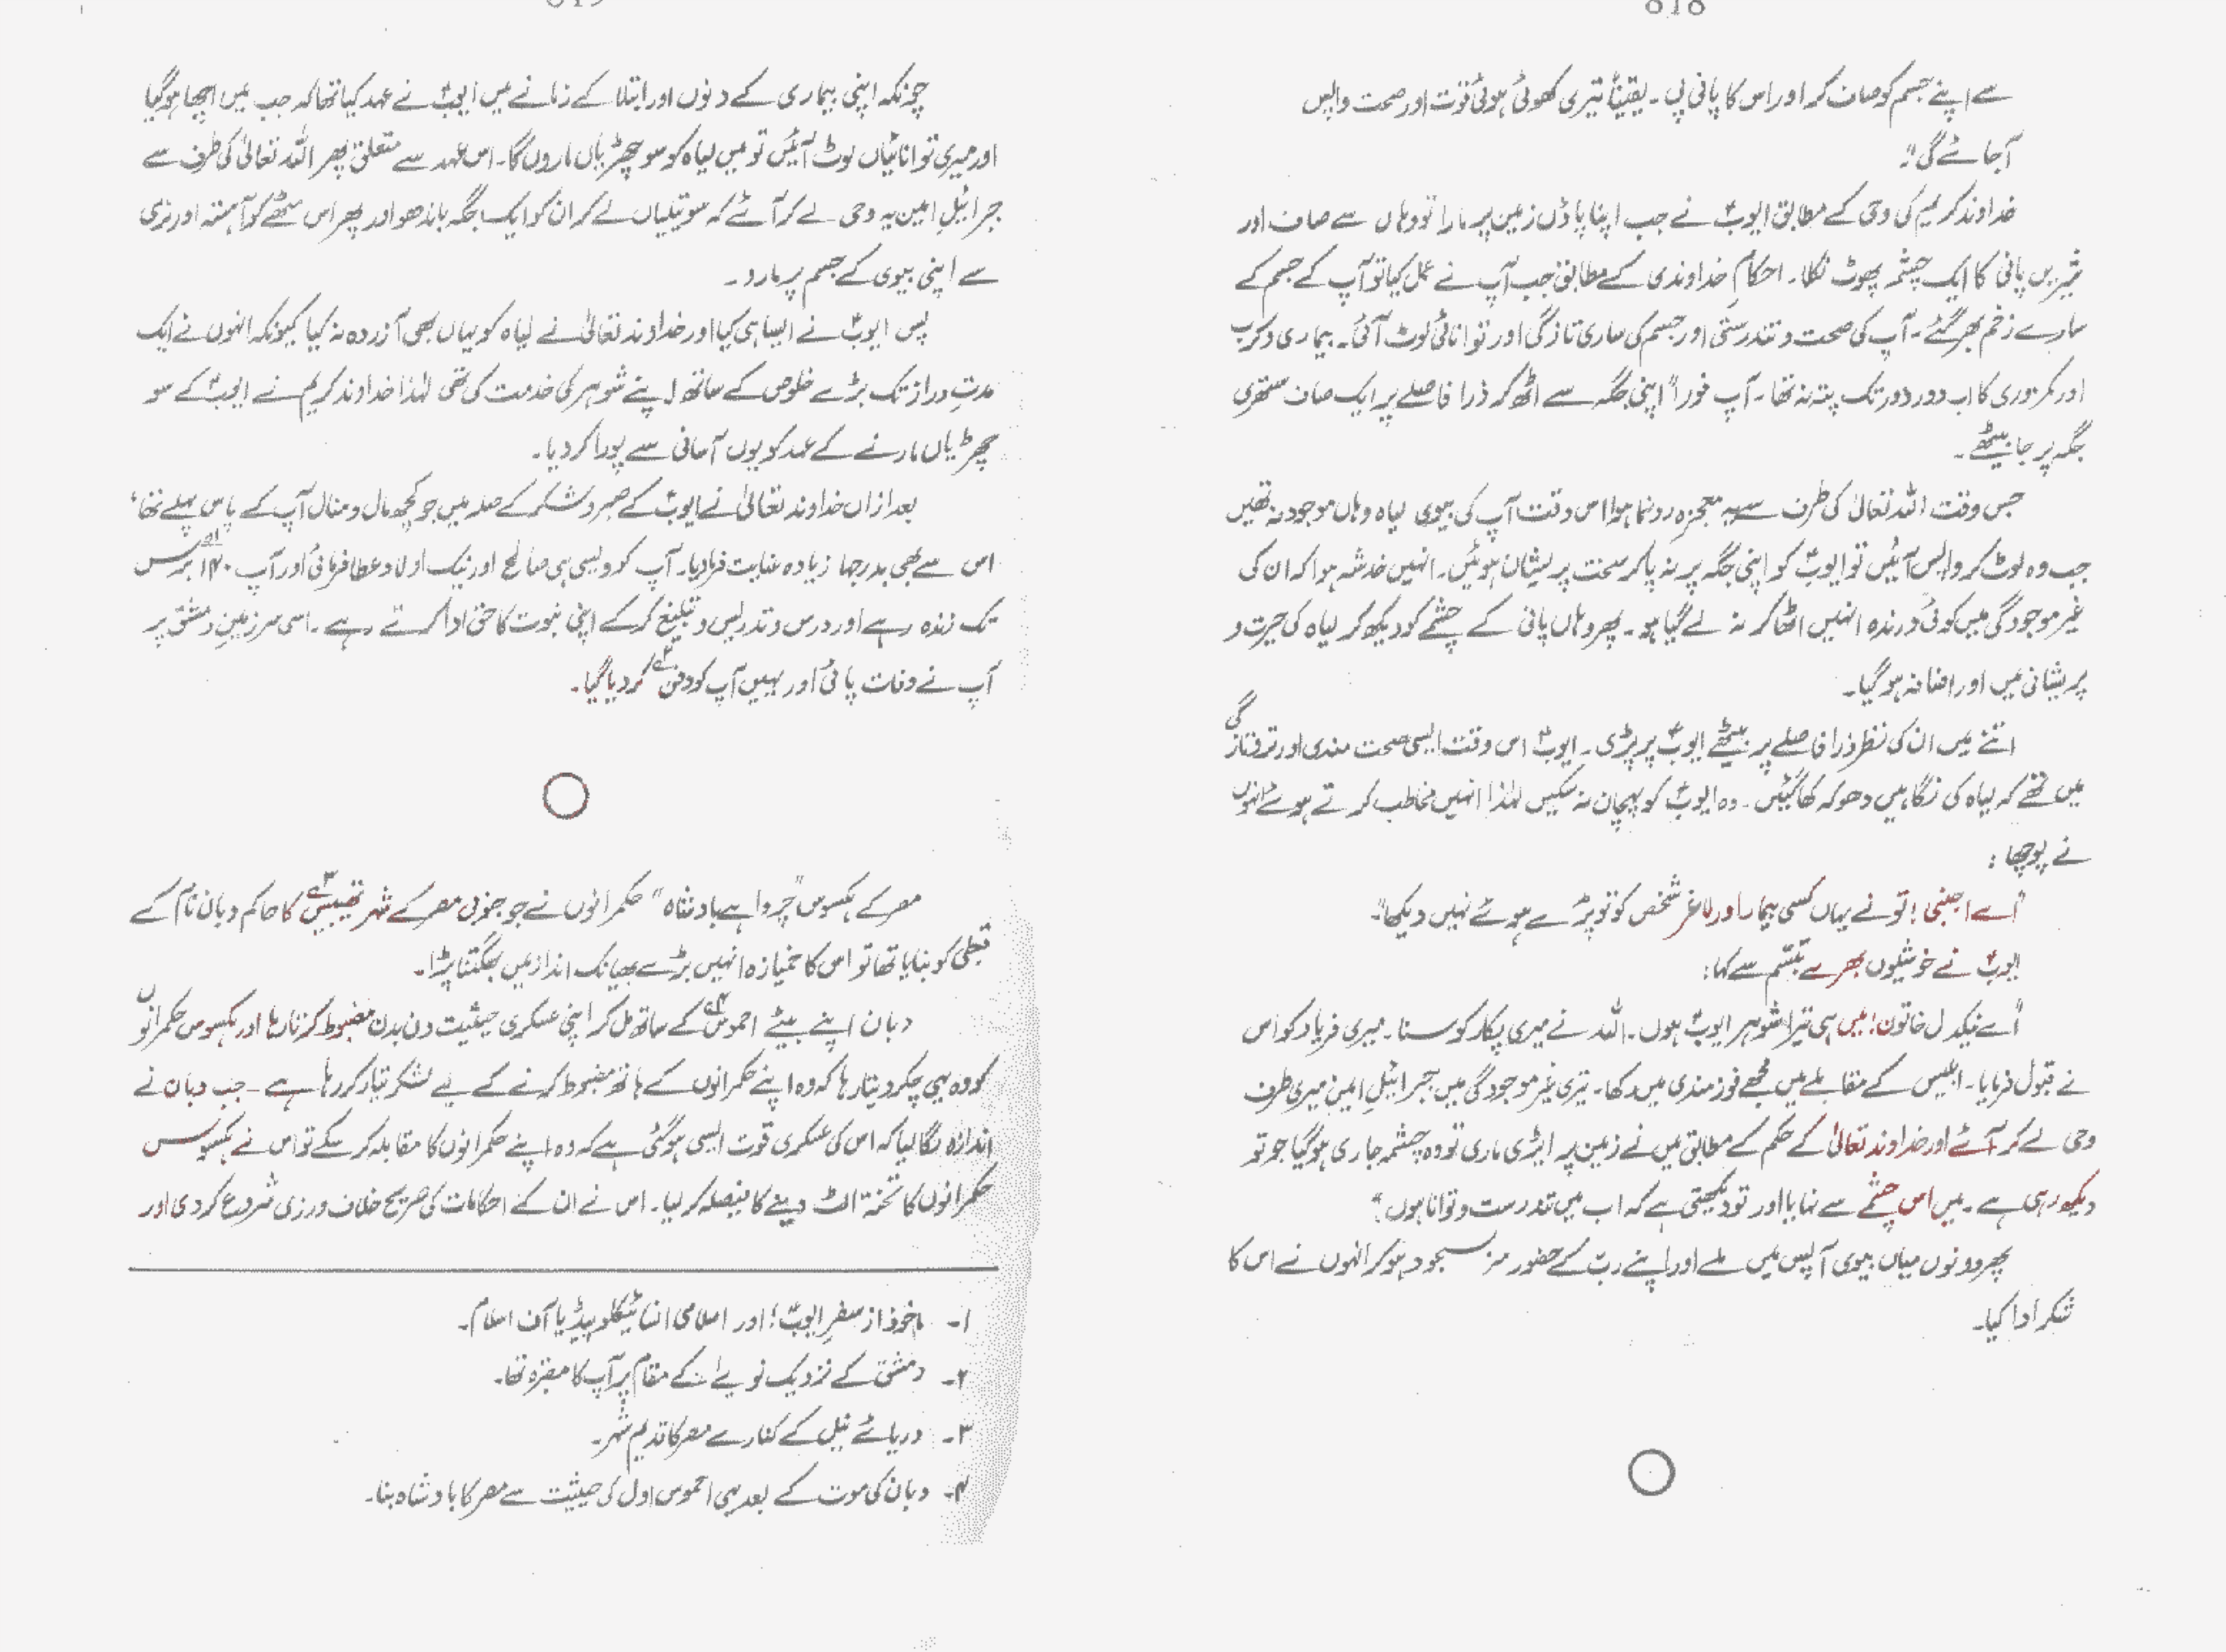 818
سے اپنے جسم کو صاف کر اور اس کا پانی پی۔ یقیناً تیری کھوئی ہوئی قوت اور صحت واپس
آجائے گی"۔
خداوند کریم کی وحی کے مطابق ایوبؑ نے جب اپنا پاؤں زمین پر مارا تو وہاں سے صاف اور
شیریں پانی کا ایک چشمہ پھوٹ نکلا۔ احکامِ خداوندی کے مطابق جب آپ نے عمل کیا تو آپ کے جسم کے
سارے زخم بھر گئے۔ آپ کی صحت و تندرستی اور جسم کی ساری تازگی اور توانائی لوٹ آئی۔ بیماری و کرب
اور کمزوری کا اب دور دور تک پتہ نہ تھا۔ آپ فوراً اپنی جگہ سے اٹھ کر ذرا فاصلے پر ایک صاف ستھری
جگہ پر جا بیٹھے۔
جس وقت اللہ تعالیٰ کی طرف سے یہ معجزہ رونما ہوا اس وقت آپ کی بیوی لیاہ وہاں موجود نہ تھیں
جب وہ لوٹ کر واپس آئیں تو ایوبؑ کو اپنی جگہ پر نہ پا کر سخت پریشان ہوئیں۔ انہیں خدشہ ہوا کہ ان کی
غیر موجودگی میں کوئی درندہ انہیں اٹھا کر نہ لے گیا ہو۔ پھر وہاں پانی کے چشمے کو دیکھ کر لیاہ کی حیرت و
پریشانی میں اور اضافہ ہو گیا۔
اتنے میں ان کی نظر ذرا فاصلے پر بیٹھے ایوبؑ پر پڑی۔ ایوبؑ اس وقت ایسی صحت مندی اور تروتازگی
میں تھے کہ لیاہ کی نگاہیں دھوکہ کھا گئیں۔ وہ ایوبؑ کو پہچان نہ سکیں لہٰذا انہیں مخاطب کرتے ہوئے انہوں
نے پوچھا:
"اے اجنبی! تو نے یہاں کسی بیمار اور لاغر شخص کو تو پڑے ہوئے نہیں دیکھا"۔
ایوبؑ نے خوشیوں بھرے تبسّم سے کہا:
"اے نیکدل خاتون! میں ہی تیرا شوہر ایوبؑ ہوں۔ اللہ نے میری پکار کو سنا۔ میری فریاد کو اس
نے قبول فرمایا۔ ابلیس کے مقابلے میں مجھے فوزمندی میں رکھا۔ تیری غیر موجودگی میں جبرائیلِ امین میری طرف
وحی لے کر آئے اور خداوند تعالیٰ کے حکم کے مطابق میں نے زمین پر ایڑی ماری تو وہ چشمہ جاری ہو گیا جو تو
دیکھ رہی ہے۔ میں اس چشمے سے نہایا اور تو دیکھتی ہے کہ اب میں تندرست و توانا ہوں"۔
پھر دونوں میاں بیوی آپس میں ملے اور اپنے ربّ کے حضور سر بسجود ہو کر انہوں نے اس کا
شکر ادا کیا۔
819
چونکہ اپنی بیماری کے دنوں اور ابتلا کے زمانے میں ایوبؑ نے عہد کیا تھا کہ جب میں اچھا ہو گیا
اور میری توانائیاں لوٹ آئیں تو میں لیاہ کو سو چھڑیاں ماروں گا۔ اس عہد سے متعلق پھر اللہ تعالیٰ کی طرف سے
جبرائیل امین یہ وحی لے کر آئے کہ سو تیلیاں لے کر ان کو ایک جگہ باندھو اور پھر اس مٹھے کو آہستہ اور نرمی
سے اپنی بیوی کے جسم پر مارو۔
پس ایوبؑ نے ایسا ہی کیا اور خداوند تعالیٰ نے لیاہ کو یہاں بھی آزردہ نہ کیا کیونکہ انہوں نے ایک
مدتِ دراز تک بڑے خلوص کے ساتھ اپنے شوہر کی خدمت کی تھی لہٰذا خداوند کریم نے ایوبؑ کے سو
چھڑیاں مارنے کے عہد کو یوں آسانی سے پورا کر دیا۔
بعد ازاں خداوند تعالیٰ نے ایوبؑ کے صبر و شکر کے صلہ میں جو کچھ مال و منال آپ کے پاس پہلے تھا،
اس سے بھی بدرجہا زیادہ عنایت فرما دیا۔ آپ کو ویسی ہی صالح اور نیک اولاد عطا فرمائی اور آپ ۱۴۰ برس
تک زندہ رہے اور درس و تدریس و تبلیغ کر کے اپنی نبوت کا حق ادا کرتے رہے۔ اسی سرزمینِ دمشق پر
آپ نے وفات پائی اور یہیں آپ کو دفن۲ کر دیا گیا۔
مصر کے ہکسوس "چرواہے بادشاہ" حکمرانوں نے جو جنوبی مصر کے شہر تھیبس۳ کا حاکم دبان نام کے
قبطی کو بنایا تھا تو اس کا خمیازہ انہیں بڑے بھیانک انداز میں بھگتنا پڑا۔
دبان اپنے بیٹے احموس۴ کے ساتھ مل کر اپنی عسکری حیثیت دن بدن مضبوط کرتا رہا اور ہکسوس حکمرانوں
کو وہ یہی چکر دیتا رہا کہ وہ اپنے حکمرانوں کے ہاتھ مضبوط کرنے کے لیے لشکر تیار کر رہا ہے۔ جب دبان نے
اندازہ لگا لیا کہ اس کی عسکری قوت ایسی ہو گئی ہے کہ وہ اپنے حکمرانوں کا مقابلہ کر سکے تو اس نے ہکسوس
حکمرانوں کا تختہ الٹ دینے کا فیصلہ کر لیا۔ اس نے ان کے احکامات کی صریح خلاف ورزی شروع کر دی اور
۱۔ ماخوذ از سفرِ ایوبؑ؛ اور اسلامی انسائیکلوپیڈیا آف اسلام۔
۲۔ دمشق کے نزدیک کے مقام پر آپ کا مقبرہ تھا۔
۳۔ دریائے نیل کے کنارے مصر کا قدیم شہر۔
۴۔ دبان کی موت کے بعد یہی احموس اول کی حیثیت سے مصر کا بادشاہ بنا۔